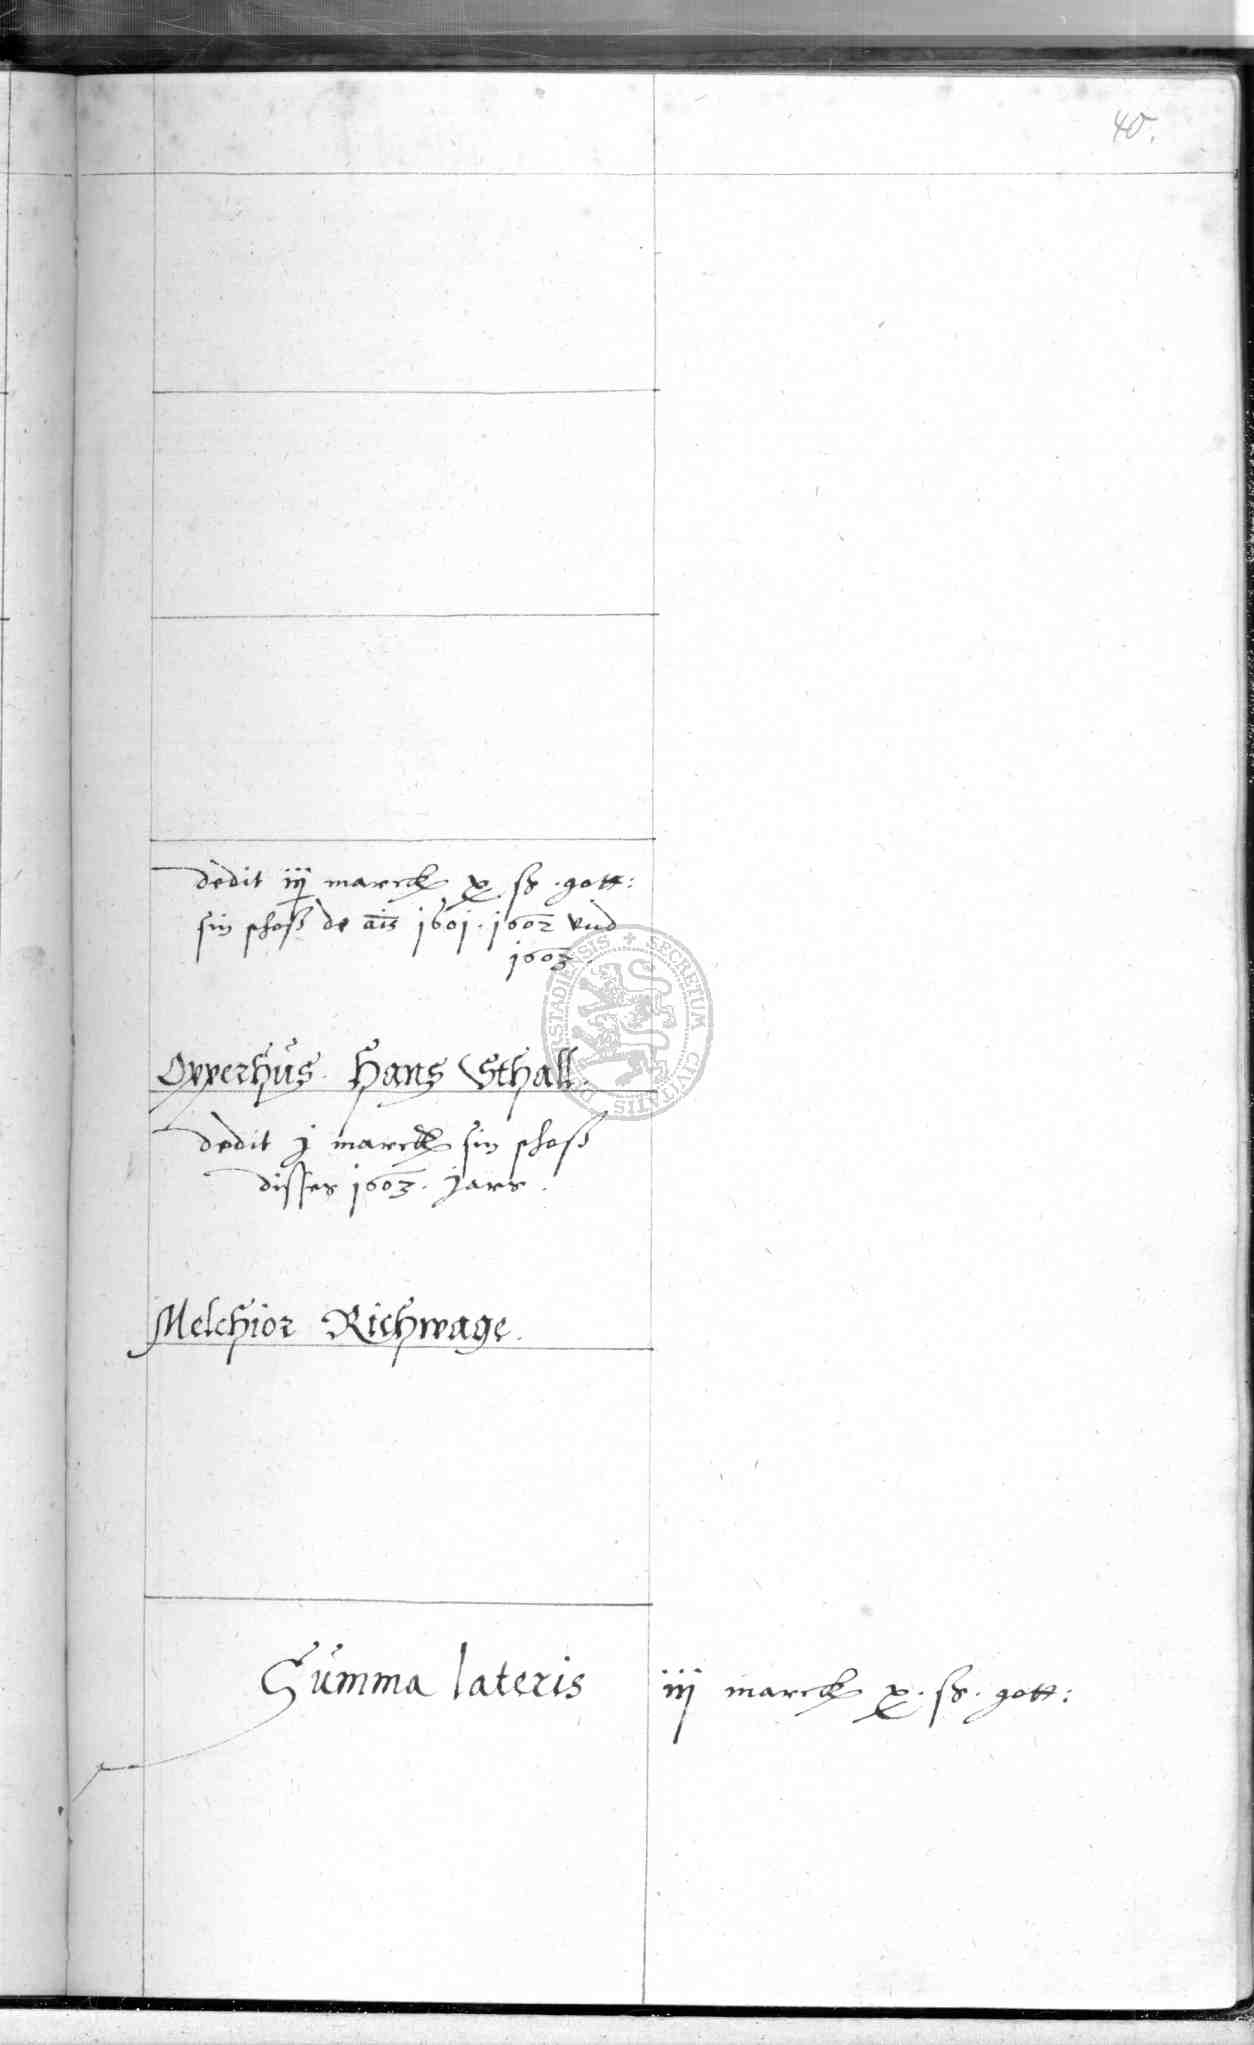 40.
dedit iij marck x ß. gott:
sin schoß de a͞is 1601. 1602 vnd
1603.
Opperhus. Hans Sthall.
dedit j marck sin schoß
disses 1603. Jars.
Melchior Richwage.
Summa lateris iij marck x. ß. gott:
SECRETUM CIVITATIS